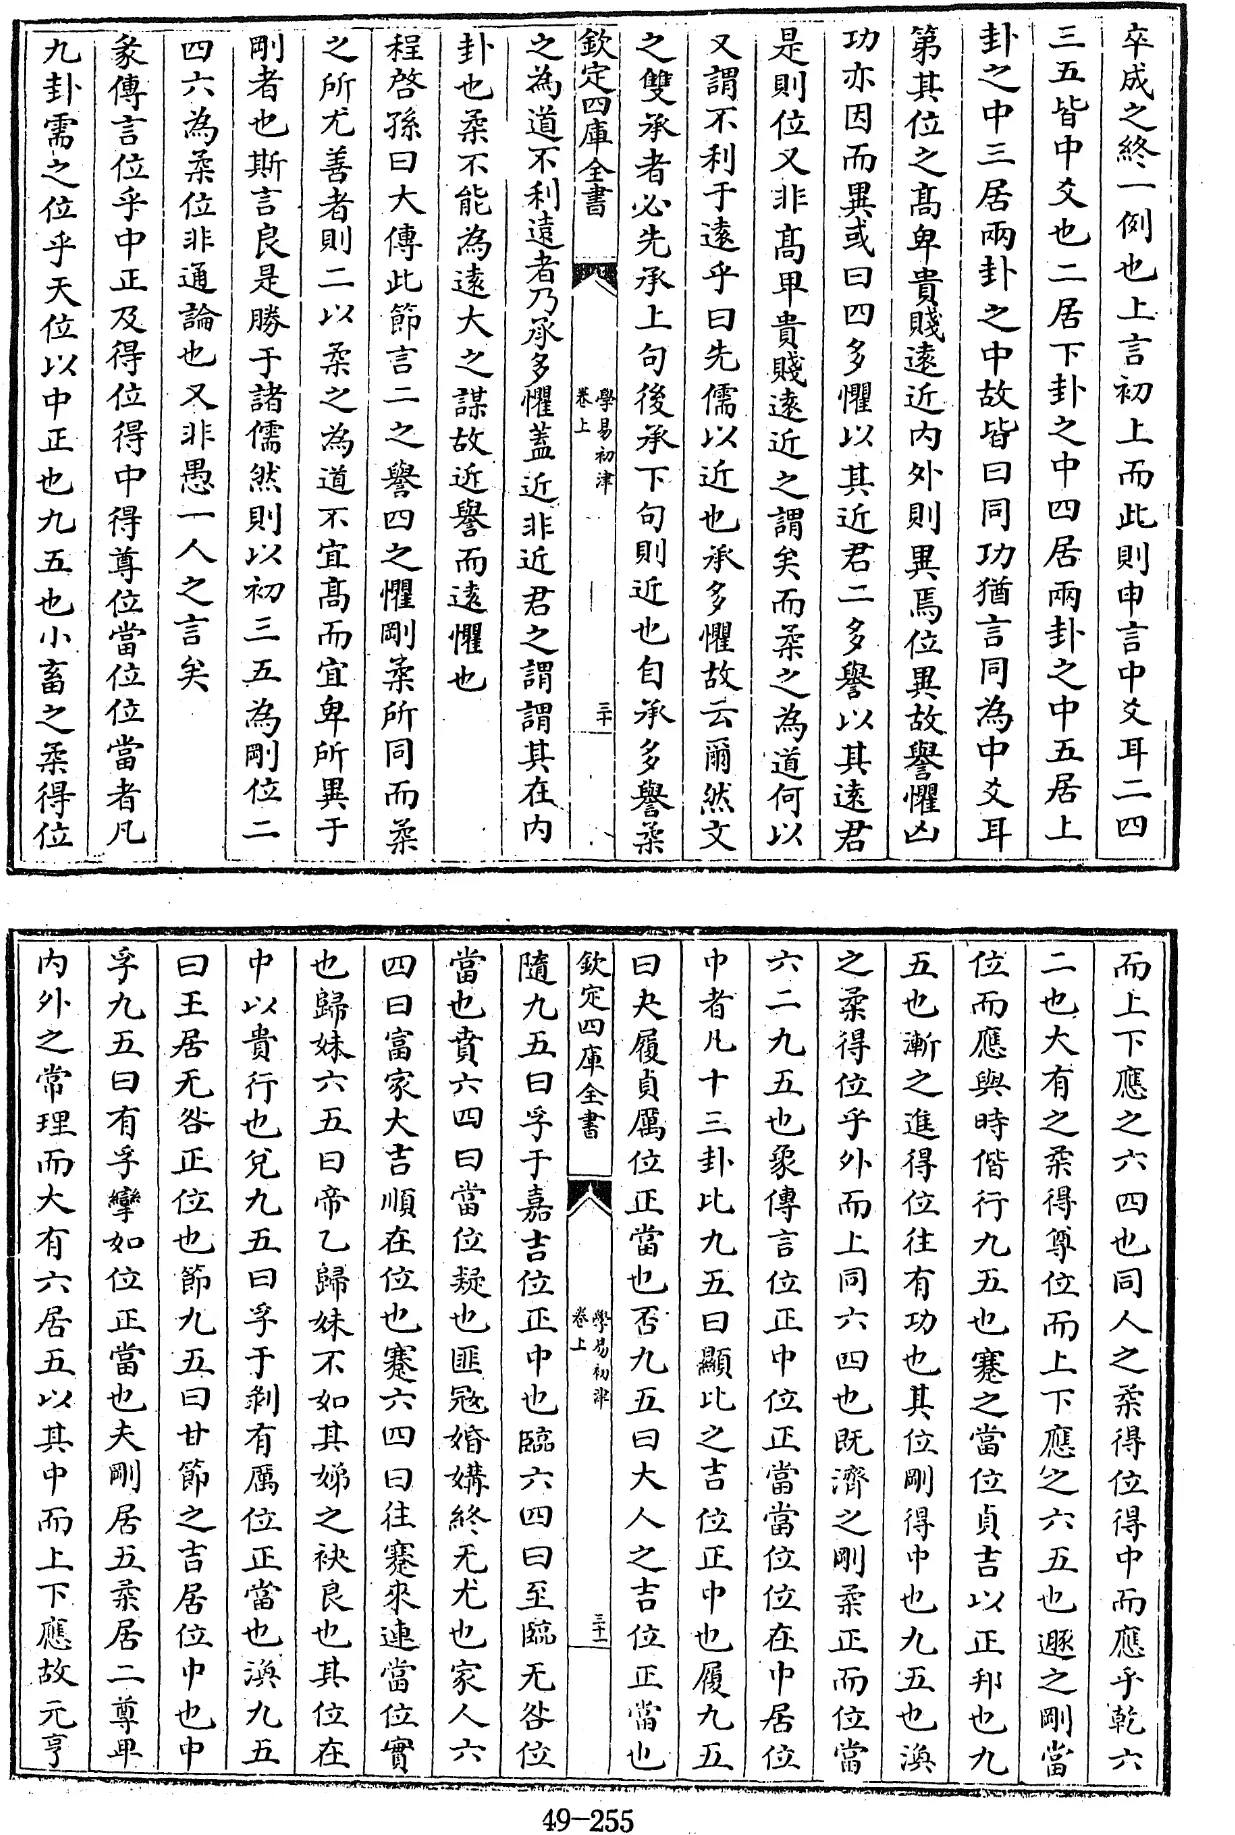 卒成之終一例也上言初上而此則申言中爻耳二四
三五皆中爻也二居下卦之中四居兩卦之中五居上
卦之中三居兩卦之中故皆曰同功猶言同為中爻耳
第其位之髙卑貴賤遠近内外則異焉位異故譽懼凶
功亦因而異或曰四多懼以其近君二多譽以其遠君
是則位又非髙卑貴賤遠近之謂矣而柔之為道何以
又謂不利于遠乎曰先儒以近也承多懼故云爾然文
之雙承者必先承上句後承下句則近也自承多譽柔
欽定四庫全書
學易初津
卷上
三十
之為道不利遠者乃承多懼蓋近非近君之謂謂其在内
卦也柔不能為遠大之謀故近譽而遠懼也
程啓孫曰大傳此節言二之譽四之懼剛柔所同而柔
之所尤善者則二以柔之為道不宜髙而宜卑所異于
剛者也斯言良是勝于諸儒然則以初三五為剛位二
四六為柔位非通論也又非愚一人之言矣
彖傳言位乎中正及得位得中得尊位當位位當者凡
九卦需之位乎天位以中正也九五也小畜之柔得位
而上下應之六四也同人之柔得位得中而應乎乾六
二也大有之柔得尊位而上下應之六五也遯之剛當
位而應與時偕行九五也蹇之當位貞吉以正邦也九
五也漸之進得位往有功也其位剛得中也九五也渙
之柔得位乎外而上同六四也既濟之剛柔正而位當
六二九五也象傳言位正中位正當當位位在中居位
中者凡十三卦比九五曰顯比之吉位正中也履九五
曰夬履貞厲位正當也否九五曰大人之吉位正當也
欽定四庫全書
學易初津
卷上
三十一
隨九五曰孚于嘉吉位正中也臨六四曰至臨无咎位
當也賁六四曰當位疑也匪冦婚媾終无尤也家人六
四曰富家大吉順在位也蹇六四曰往蹇來連當位實
也歸妹六五曰帝乙歸妹不如其娣之袂良也其位在
中以貴行也兌九五曰孚于剥有厲位正當也渙九五
曰王居无咎正位也節九五曰甘節之吉居位中也中
孚九五曰有孚攣如位正當也夫剛居五柔居二尊卑
内外之常理而大有六居五以其中而上下應故元亨
49-255